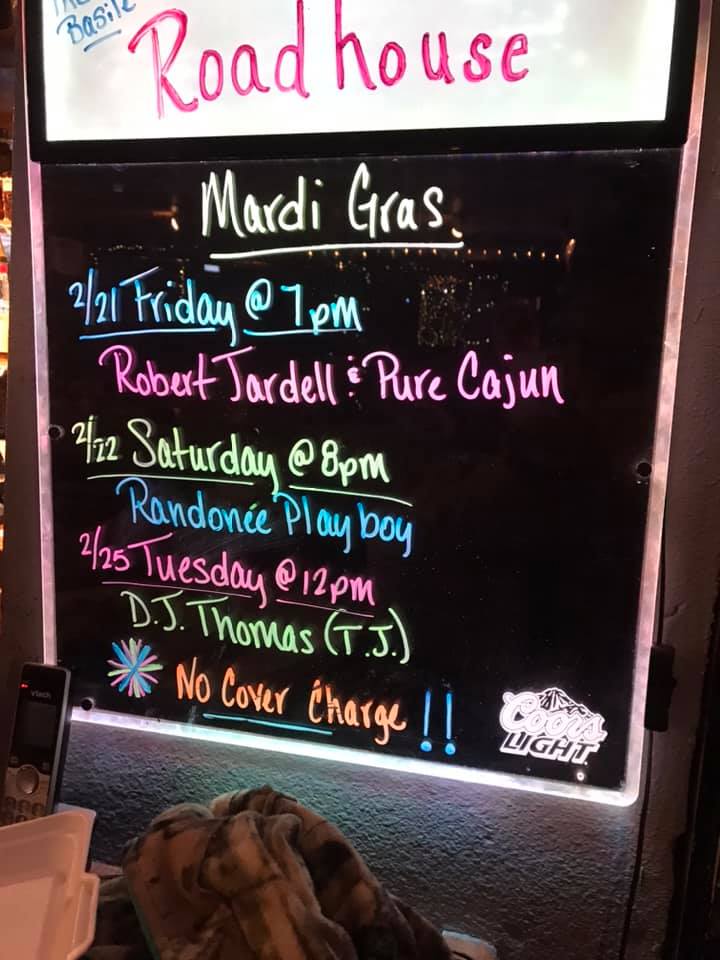 Basile
Roadhouse
Mardi Gras.
2/21 Friday @ 7pm
Robert Jardell & Pure Cajun
2/22 Saturday @ 8pm
Randonée Playboy
2/25 Tuesday @ 12pm
D.J. Thomas (T.J.)
No Cover Charge !!
Coors
LIGHT
vtech